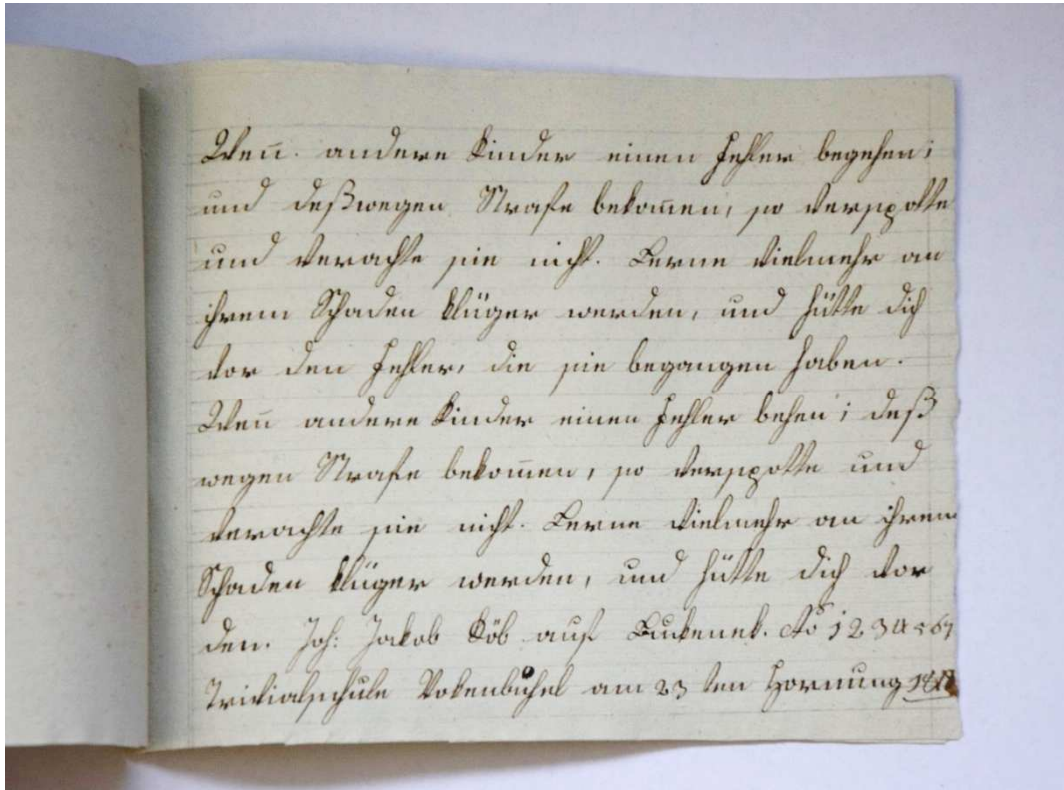 Weñ. andere Kinder einen Fehler begehen;
und deßwegen Strafe bekom̄en, so verspotte
und verachte sie nicht. Lerne vielmehr an
ihrem Schaden klüger werden, und hütte dich
vor den Fehler, die sie begangen haben.
Weñ andere Kinder einen Fehler behen; deß
wegen Strafe bekom̄en, so verspotte und
verachte sie nicht. Lerne vielmehr an ihrem
Schaden klüger werden, und hütte dich vor
den. Joh: Jakob Köb auf No 1 2 3 4 5 6 7
Trivialschule am 23 ten Hornung